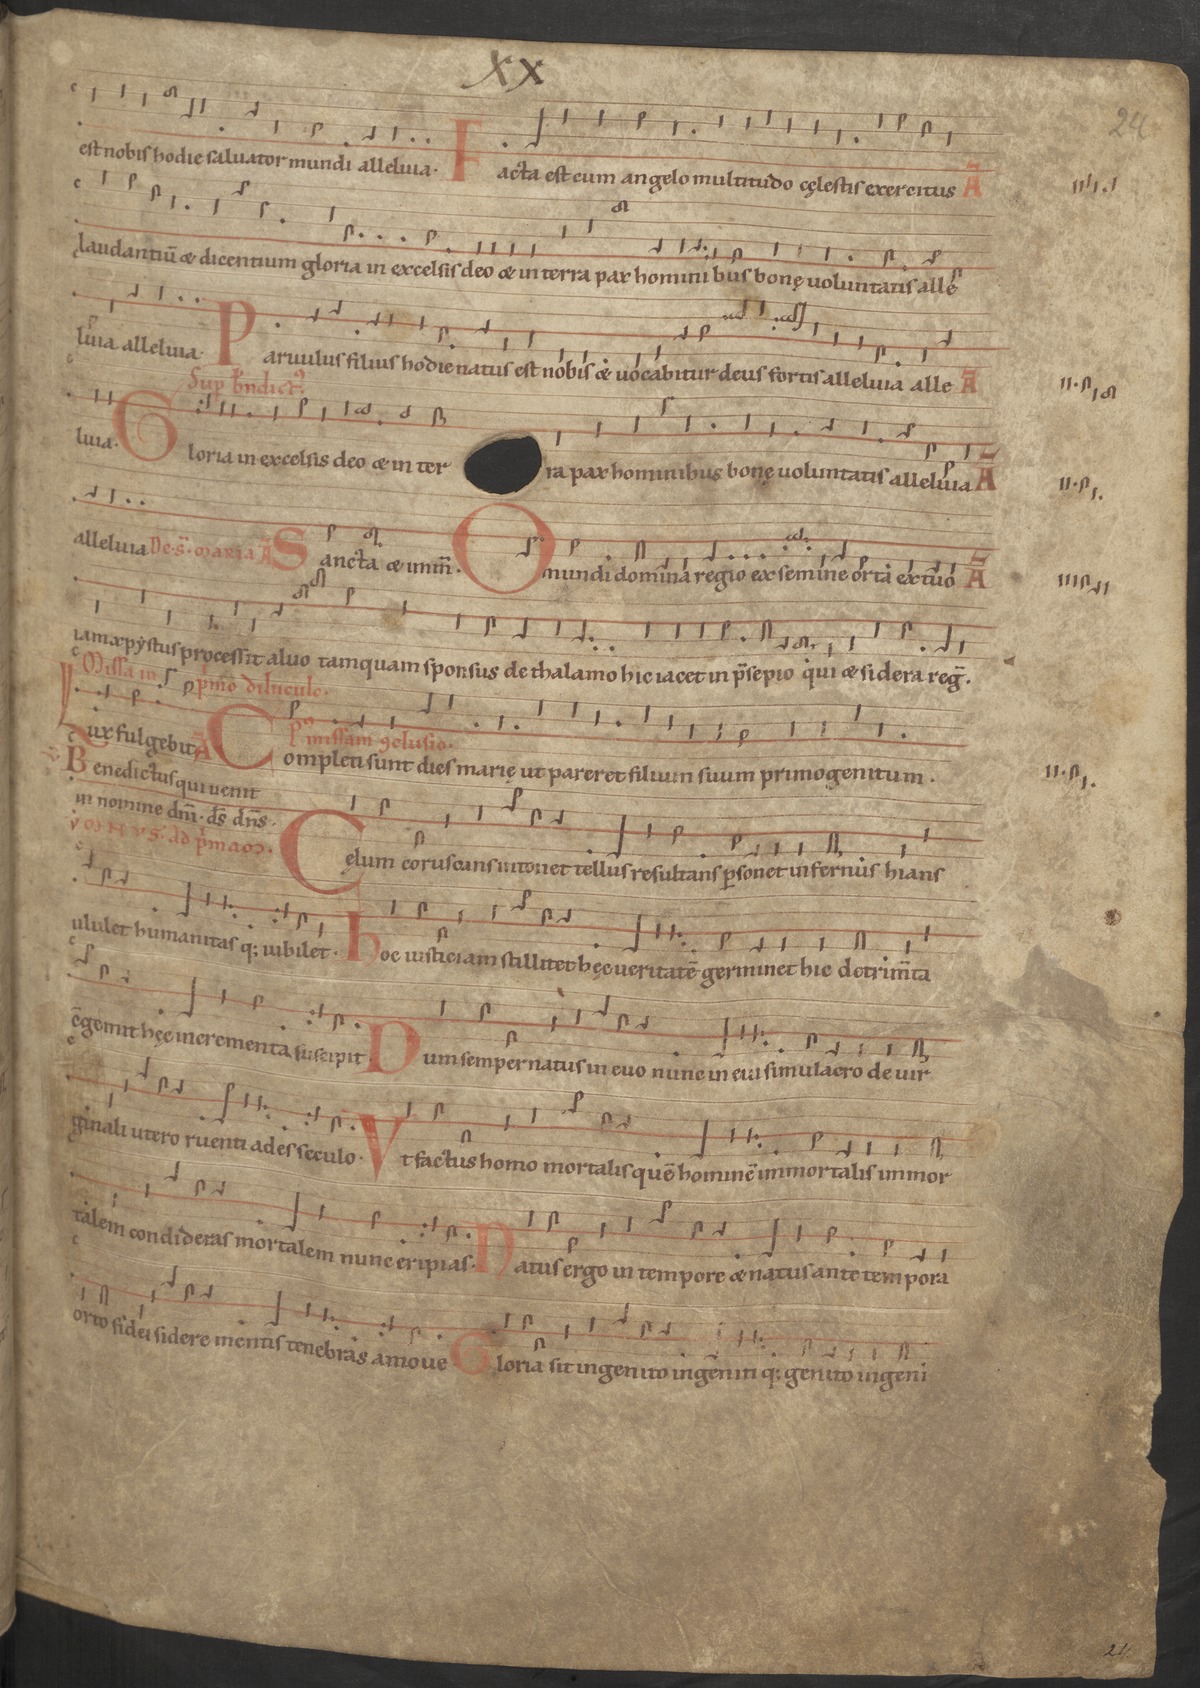 XX
24
est nobis hodie saluator mundi alleluia. Facta est cum angelo multitudo cęlestis exercitus A̅
laudantiū & dicentium gloria in excelsis deo & in terra pax homini bus bonę uoluntatis alle
luia alleluia. Paruulus filius hodie natus est nobis & uocabitur deus fortis alleluia alle A̅
luia. Gloria in excelsis deo & in ter ra pax hominibus bonę uoluntatis alleluia A̅
alleluia De s̄. maria A̅ Sancta & inm̄. O mundi domina regio ex semine orta ex tuo A̅
iam xp̄ystus processit aluo tamquam sponsus de thalamo hic iacet in p̄sepio qui & sidera reḡ.
Missa in p̄mo diluculo.
Lux fulgebit A̅ Completi sunt dies marię ut pareret filium suum primogenitum.
Benedictus qui uenit
in nomine dn̄i. ds̄ dn̄s.
Cęlum coruscans intonet tellus resultans p̱sonet infernus hians
ululet humanitas q; iubilet. Hoc iusticiam stillitet hęc ueritatē germinet hic detrim̄ta
ēgemit hęc incrementa suscipit. Dum semper natus in euo nunc in eui simulacro de uir
ginali utero ruenti ades seculo. Vt factus homo mortalis quē hominē immortalis immor
talem condideras mortalem nunc eripias. Natus ergo in tempore & natus ante tempora
orto fidei sidere mentis tenebras amoue Gloria sit ingenito ingeniti q; genito ingeni